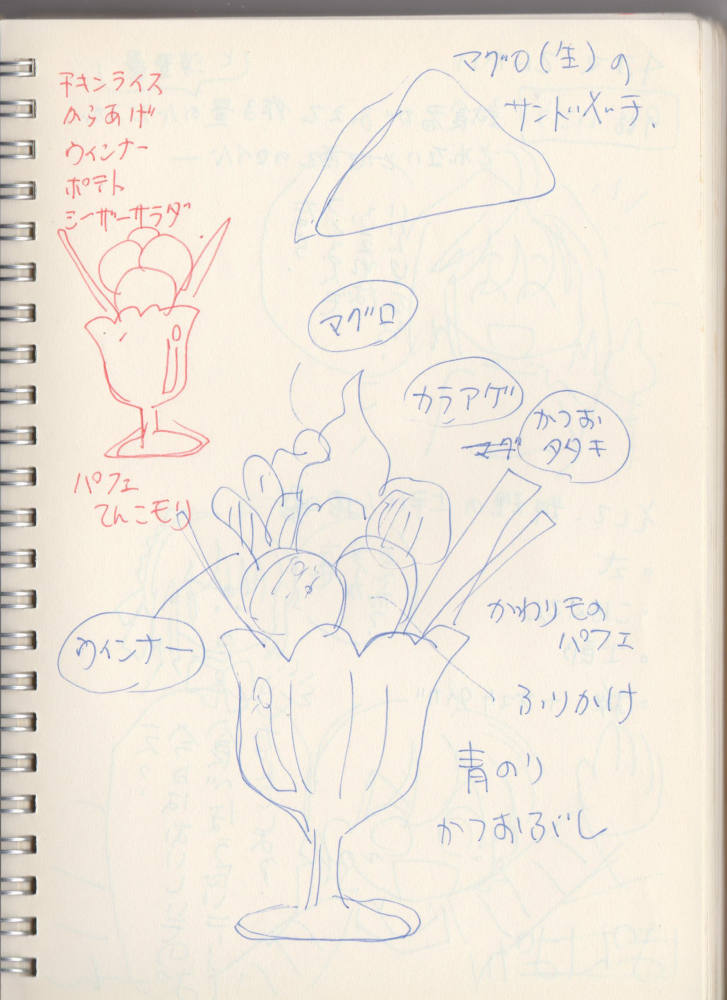 チキンライス
からあげ
ウィンナー
ポテト
シーザーサラダ
パフェ
てんこモリ
マグロ(生)の
サンドイッチ.
マグロ
カラアゲ
かつお
タタキ
ウィンナー
かわりモの
パフェ
ふりかけ
青のり
かつおぶし